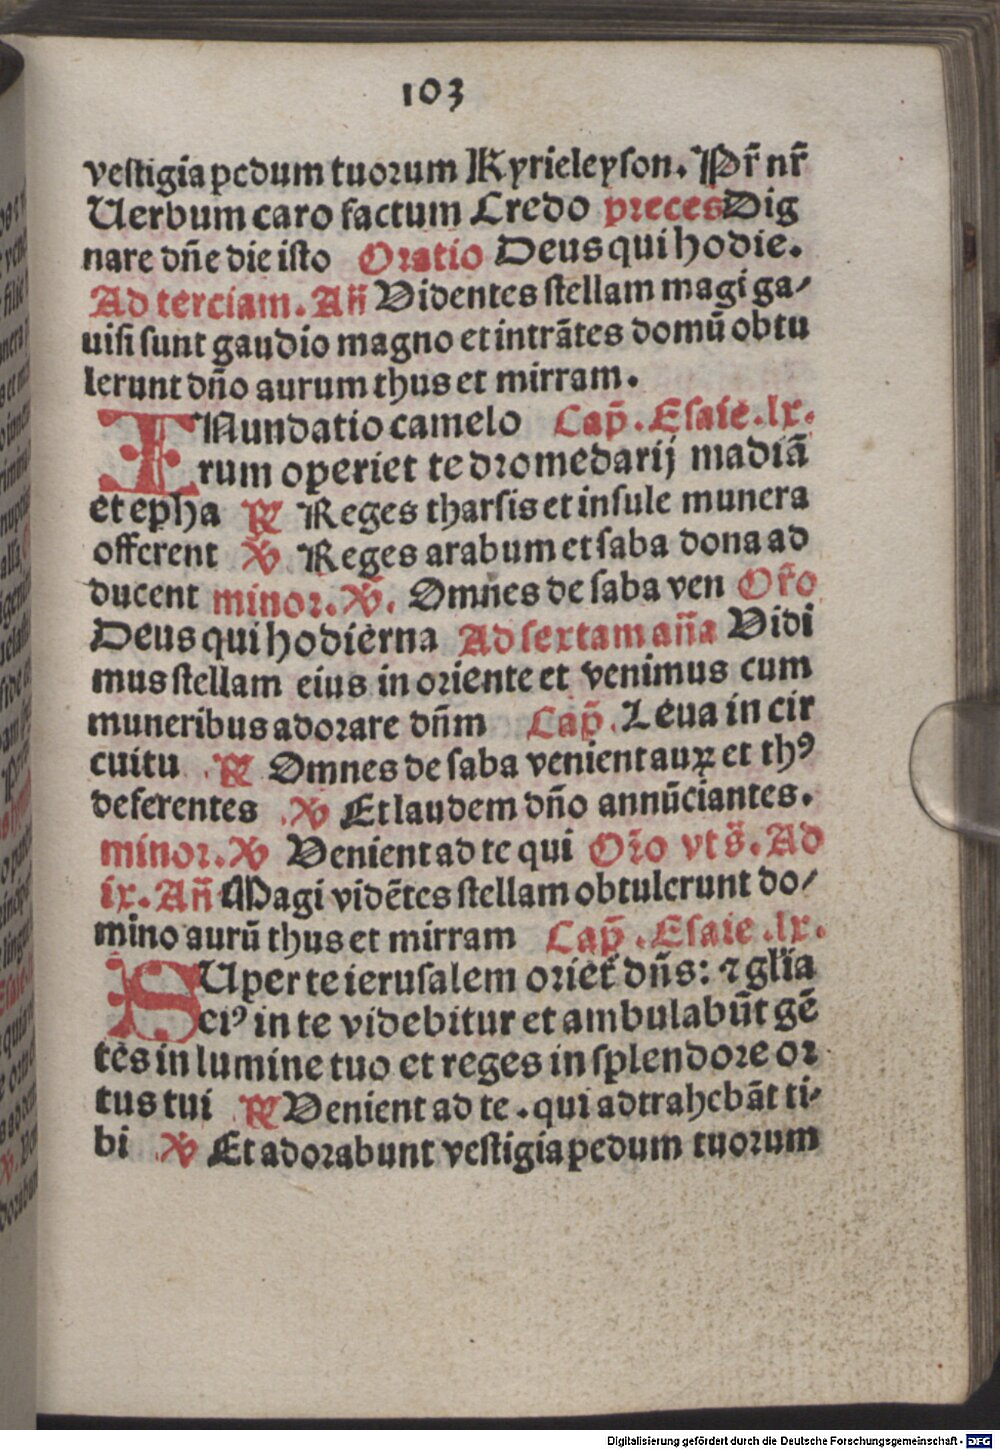 103
vestigia pedum tuorum Kyrieleyson. Pr̄ nr̄
Uerbum caro factum Credo precesDig
nare dn̄e die isto Oratio Deus qui hodie.
Ad terciam. An̄ Videntes stellam magi ga⸗
uisi sunt gaudio magno et intrātes domū obtu
lerunt dn̄o aurum thus et mirram.
INundatio camelo Cap̄. Esaie. lx.
rum operiet te dromedarij madiā
et epha ℟ Reges tharsis et insule munera
offerent ℣ Reges arabum et saba dona ad
ducent minor. ℣. Omnes de saba ven Or̄o
Deus qui hodierna Ad sextam an̄a Vidi
mus stellam eius in oriente et venimus cum
muneribus adorare dn̄m Cap̄. Leua in cir
cuitu ℟ Omnes de saba venient auꝝ et thꝰ
deferentes ℣ Et laudem dn̄o annūciantes.
minor. ℣ Venient ad te qui Or̄o vt s̄. Ad
ix. An̄ Magi vidētes stellam obtulerunt do⸗
mino aurū thus et mirram Cap̄. Esaie. lx.
SUper te ierusalem oriet̄ dn̄s: ⁊ gl̄ia
eiꝰ in te videbitur et ambulabūt gē
tes in lumine tuo et reges in splendore or
tus tui ℟ Venient ad te. qui adtrahebāt ti⸗
bi ℣ Et adorabunt vestigia pedum tuorum
Digitalisierung gefördert durch die Deutsche Forschungsgemeinschaft - DFG